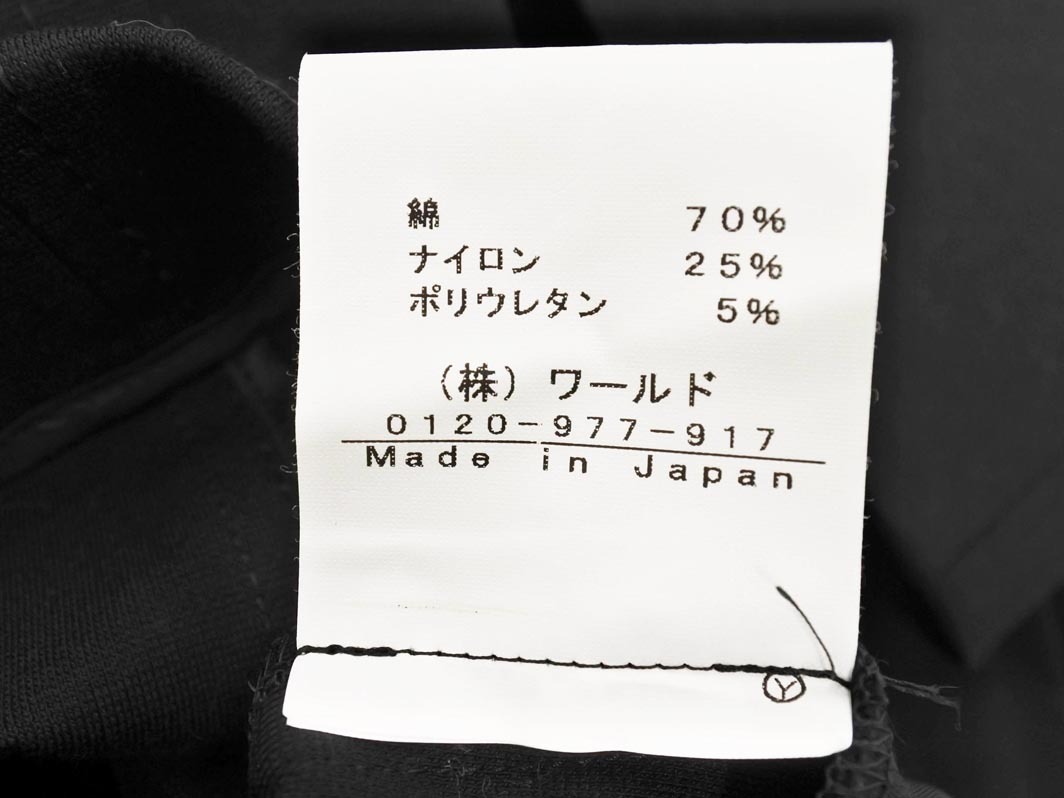 綿 70%
ナイロン 25%
ポリウレタン 5%
(株) ワールド
0120-977-917
Made in Japan
Y